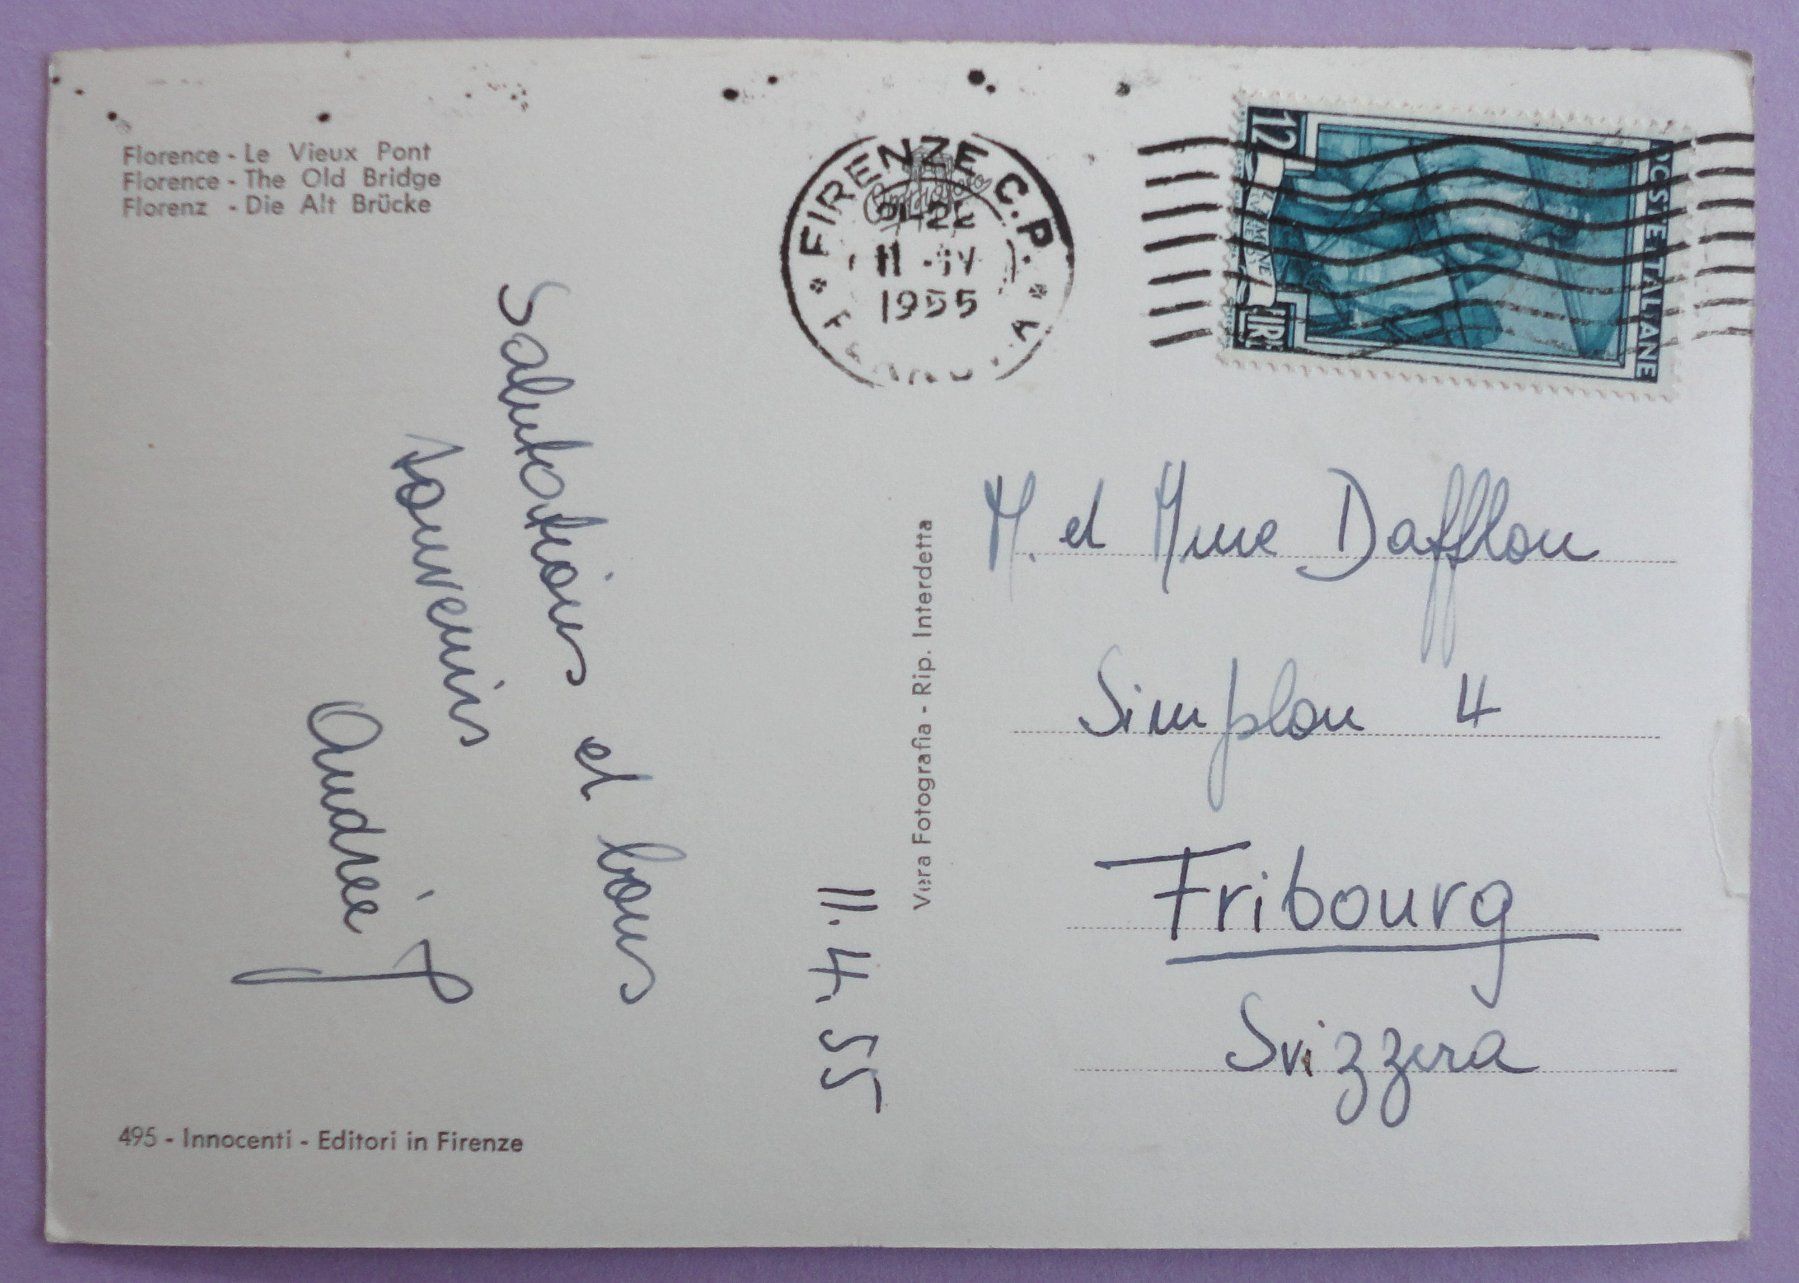 Florence - Le Vieux Pont
Florence - The Old Bridge
Florenz - Die Alt Brücke
Salutations et bons
souvenirs
Andrée J
11.4.55
495 - Innocenti - Editori in Firenze
Vera Fotografia - Rip. Interdetta
FIRENZE C.P.
21-22
11 -IV
1955
12
LIRE
POSTE ITALIANE
M. et Mme Dafflon
Simplon 4
Fribourg
Svizzera